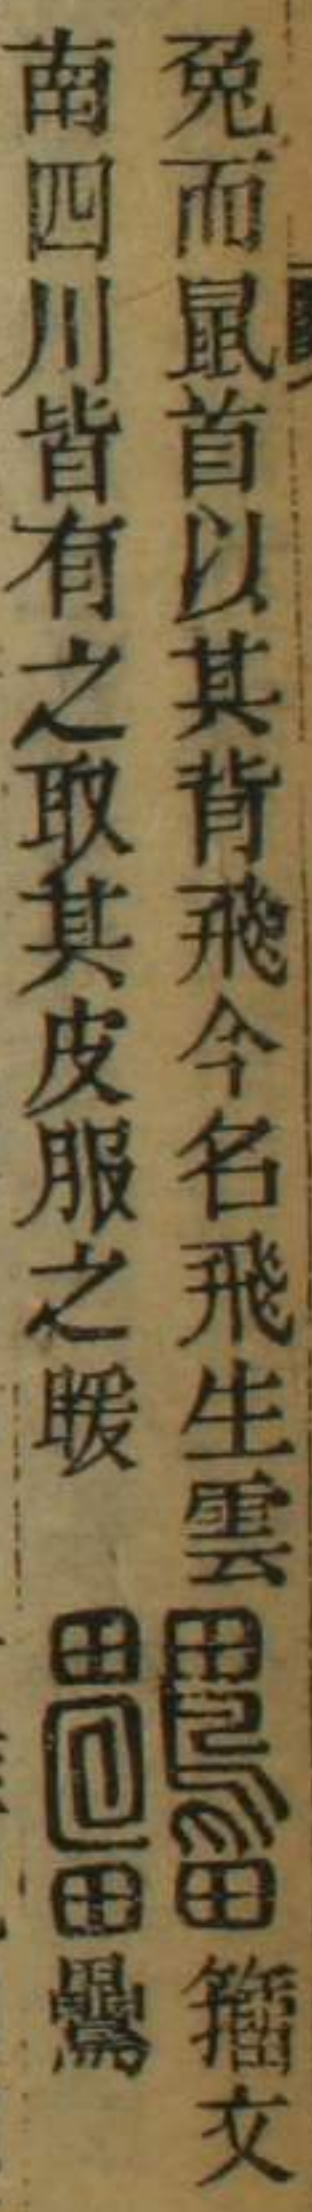 兔而鼠首以其背飛今名飛生雲
南四川皆有之取其皮服之暖
籀文